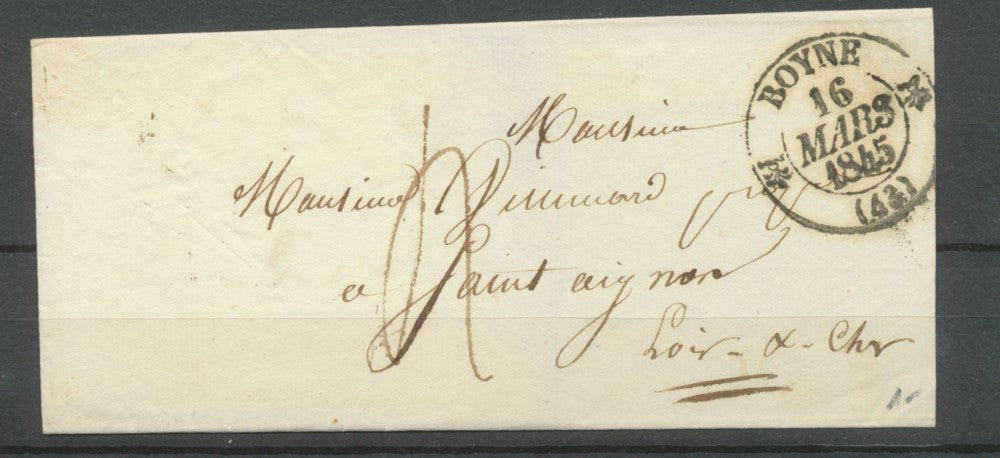 BOYNE
16
MARS
1845
(43)
Monsieur
Monsieur
a Saint aignan
Loir-&-Cher